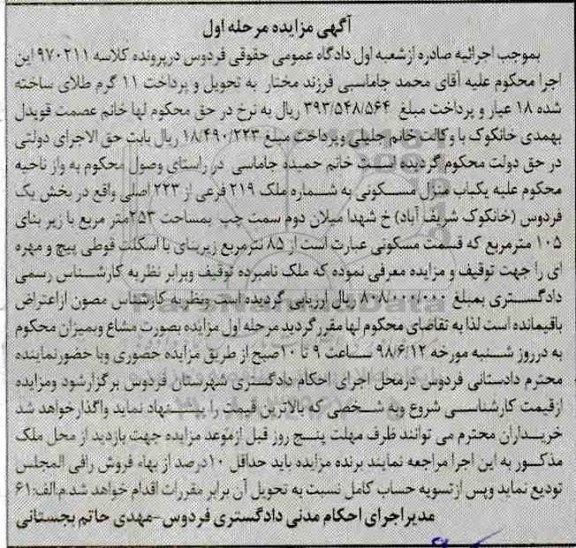 آگهی مزایده مرحله اول
بموجب اجرائیه صادره ازشعبه اول دادگاه عمومی حقوقی فردوس درپرونده کلاسه ۹۷۰۲۱۱ این
اجرا محکوم علیه آقای محمد جاماسبی فرزند مختار به تحویل و پرداخت ۱۱ گرم طلای ساخته
شده ۱۸ عیار و پرداخت مبلغ ۳۹۳/۵۴۸/۵۶۴ ریال به نرخ در حق محکوم لها خانم عصمت قویدل
بهمدی خانکوک با وکالت خانم جلیلی وپرداخت مبلغ ۱۸/۴۹۰/۲۲۳ ریال بابت حق الاجرای دولتی
در حق دولت محکوم گردیده است خانم حمیده جاماسی در راستای وصول محکوم به واز ناحیه
محکوم علیه یکباب منزل مسکونی به شماره ملک ۲۱۹ فرعی از ۲۲۳ اصلی واقع در بخش یک
فردوس (خانکوک شریف آباد) خ شهدا میلان دوم سمت چپ بمساحت ۲۵۳متر مربع با زیر بنای
۱۰۵ مترمربع که قسمت مسکونی عبارت است از ۸۵ مترمربع زیربنای با اسکلت قوطی پیچ و مهره
ای را جهت توقیف و مزایده معرفی نموده که ملک نامبرده توقیف وبرابر نظریه کارشناس رسمی
دادگستری بمبلغ ۸۰۸/۰۰۰/۰۰۰ ریال ارزیابی گردیده است ونظریه کارشناس مصون ازاعتراض
باقیمانده است لذا به تقاضای محکوم لها مقرر گردید مرحله اول مزایده بصورت مشاع وبمیزان محکوم
به درروز شنبه مورخه ۹۸/۶/۱۲ ساعت ۹ تا ۱۰صبح از طریق مزایده حضوری وبا حضورنماینده
محترم دادستانی فردوس درمحل اجرای احکام دادگستری شهرستان فردوس برگزارشود ومزایده
ازقیمت کارشناسی شروع وبه شخصی که بالاترین قیمت را پیشنهاد نماید واگذارخواهد شد
خریداران محترم می توانند ظرف مهلت پنج روز قبل ازموعد مزایده جهت بازدید از محل ملک
مذکور به این اجرا مراجعه نمایند برنده مزایده باید حداقل ۱۰درصد از بهاء فروش رافی المجلس
تودیع نماید وپس ازتسویه حساب کامل نسبت به تحویل آن برابر مقررات اقدام خواهد شد.م.الف:۶۱
مدیراجرای احکام مدنی دادگستری فردوس-مهدی حاتم بجستانی